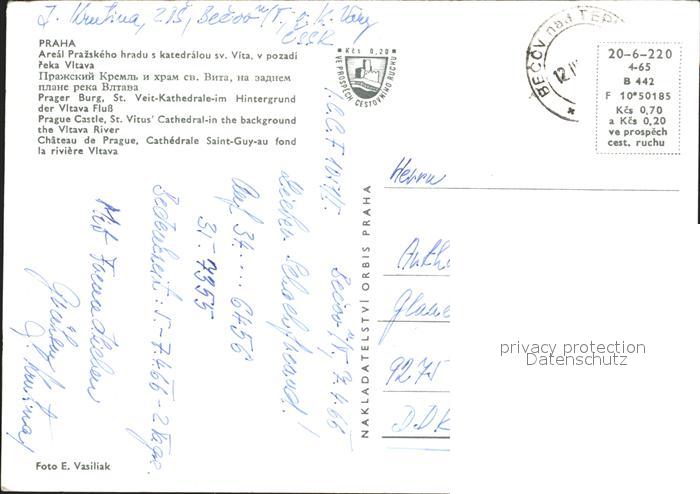 J. Krutina, ZDŠ, Bečov n/T. o. K. Vary
ČSSR
PRAHA
Areál Pražského hradu s katedrálou sv. Víta, v pozadí
řeka Vltava
Пражский Кремль и храм св. Вита, на заднем
плане река Влтава
Prager Burg, St. Veit-Kathedrale-im Hintergrund
der Vltava Fluß
Prague Castle, St. Vitus' Cathedral-in the background
the Vltava River
Château de Prague, Cathédrale Saint-Guy-au fond
la rivière Vltava
Kčs 0,20
VE PROSPĚCH CESTOVNÍHO RUCHU
BEČOV nad TEP
12
20-6-220
4-65
B 442
F 10*50185
Kčs 0,70
a Kčs 0,20
ve prospěch
cest. ruchu
Bečov n/T. 7.4.66
Lieber Schachfreund!
Auf 34. ... 6456
35. 7355
Bedenkzeit: 5.-7.4.66 - 2 Tage.
Mit Freundlichen
Grüßen
J. Krutina
NAKLADATELSTVÍ ORBIS PRAHA
Herrn
9275
DDR
privacy protection
Datenschutz
Foto E. Vasiliak